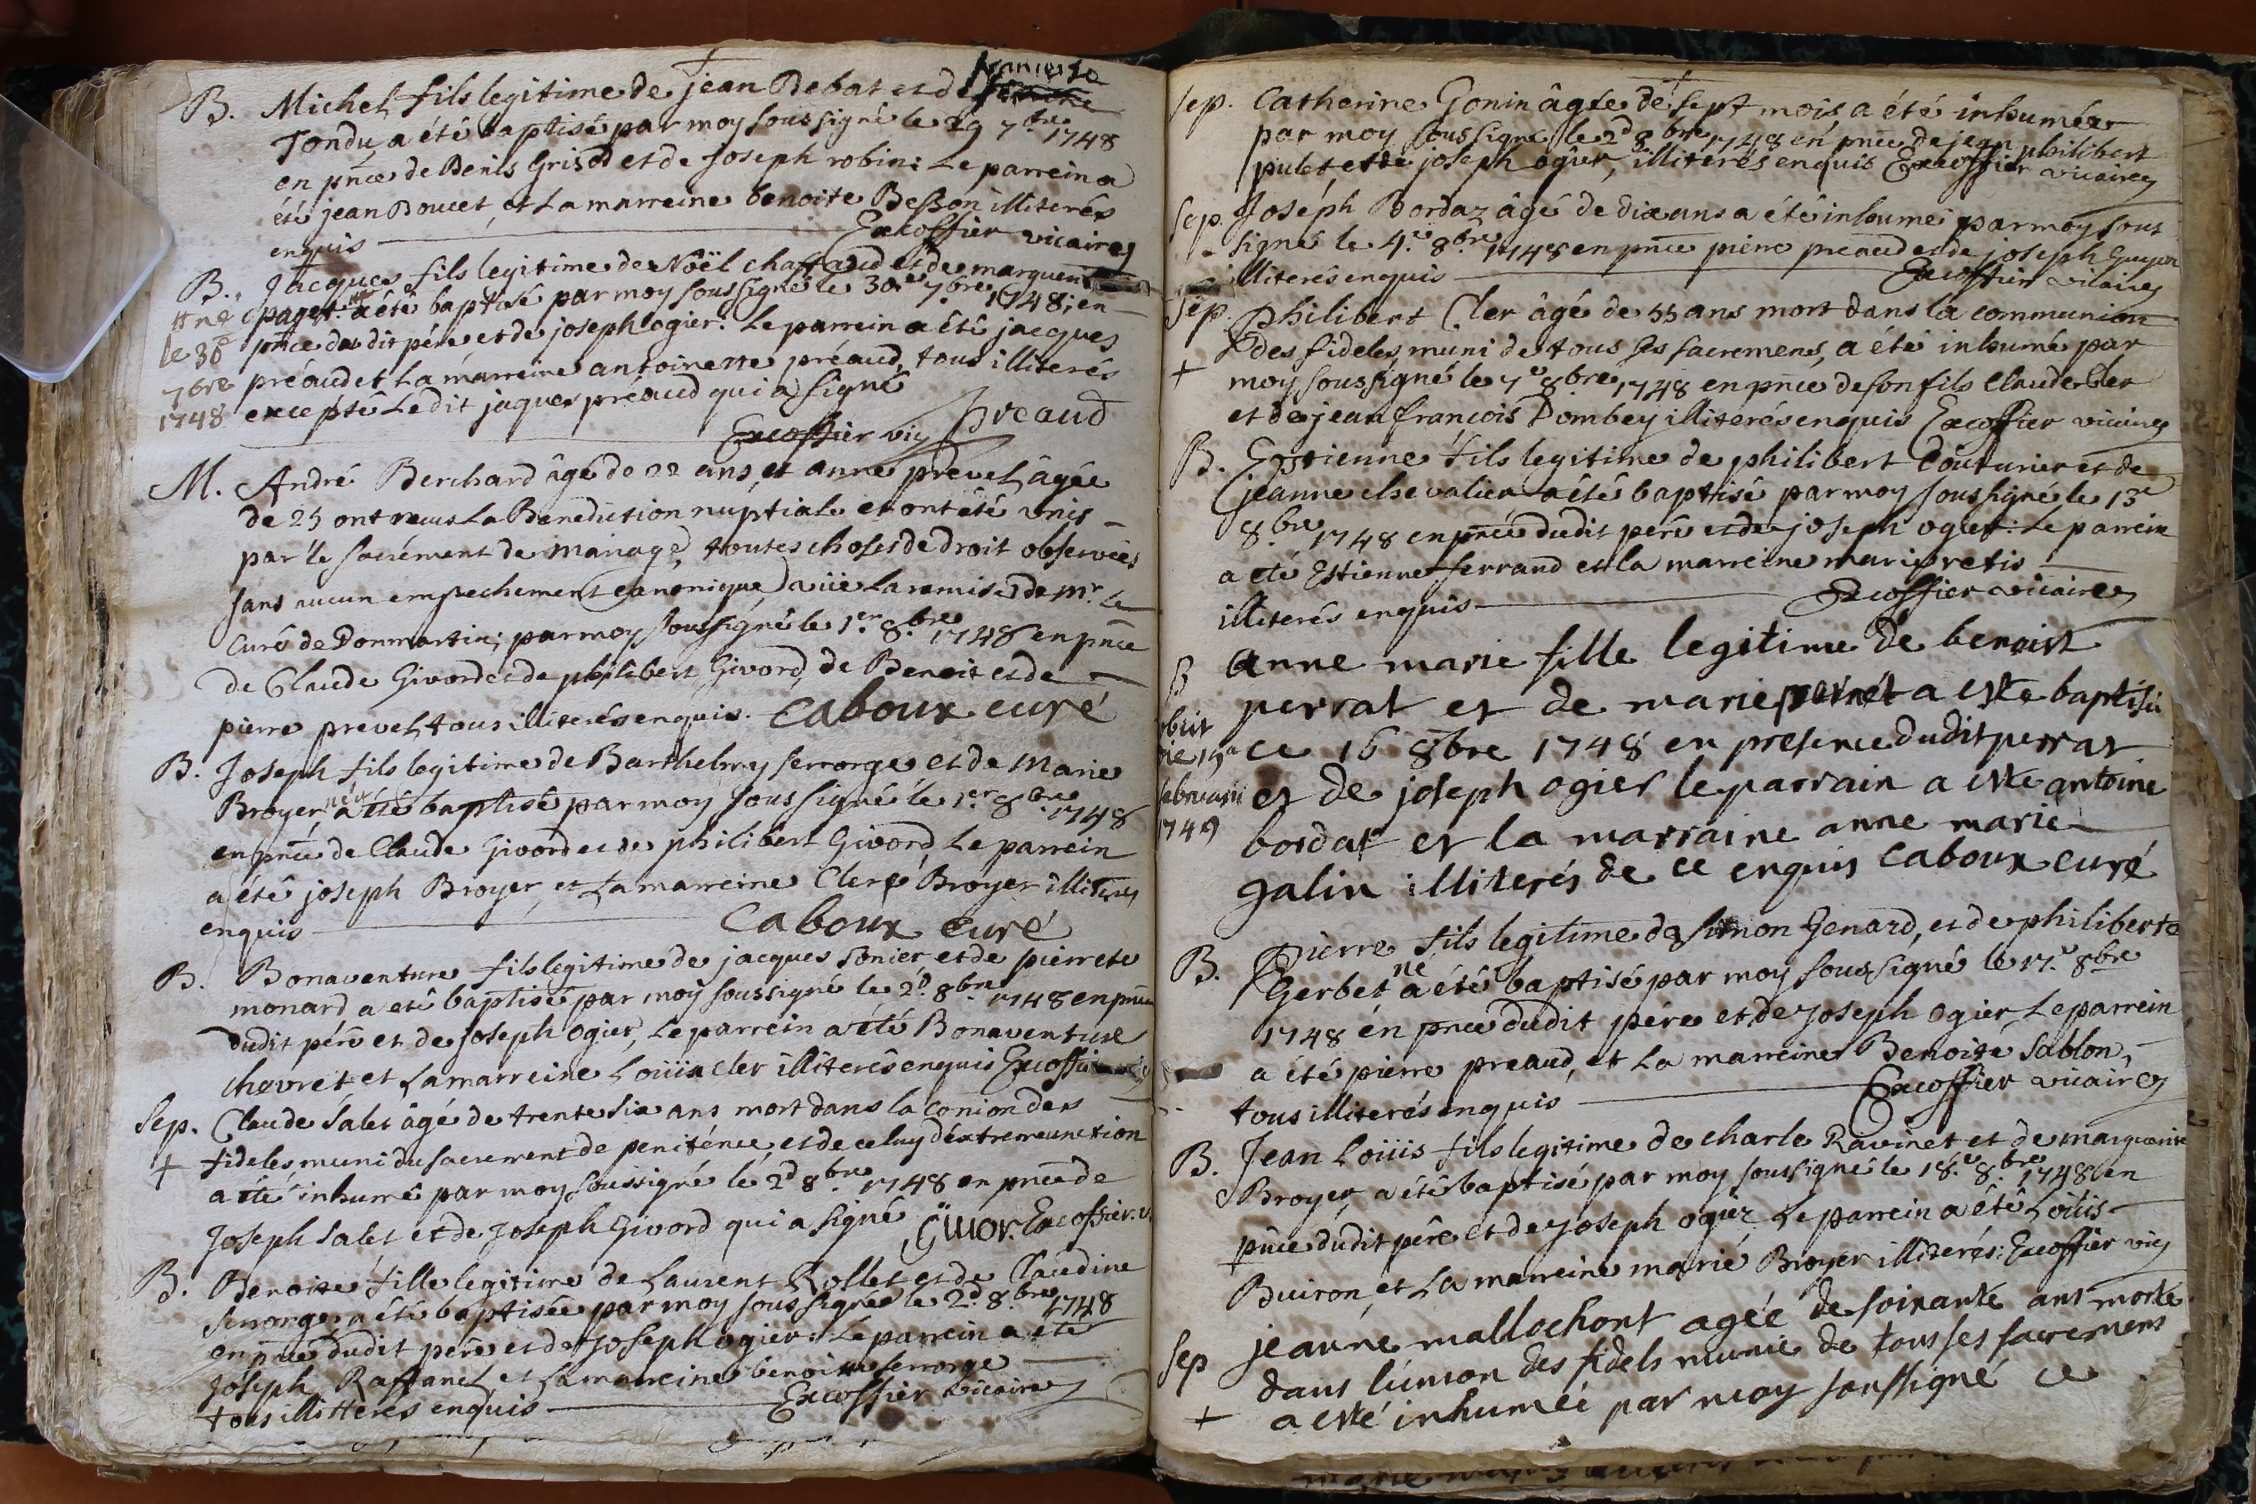 B. Michel fils legitime de jean Debat et de
Tondu, a été baptisé par moy soussigné le 29 7.bre 1748
en pn̄ce de Denis Grisod et de Joseph robin: Le parrein a
été jean Doucet et La marreine benoite Besson illiterés
enquis — Excoffier vicaire
B. Jacques fils legitime de Noël chaffaud et de
paget a été baptisé par moy soussigné le 30.e 7.bre 1748; en
pn̄ce du dit pére et de joseph ogier. Le parrein a été jacques
préaud et La marreine antoinette préaud, tous illiterés
excepté Le dit jaques préaud qui a signé
né
le 30e
7bre
1748
Excoffier vic preaud
M. André Berchard âgé de 22 ans, et anne prevel âgée
de 25 ont recus La Benediction nuptiale et ont été unis
par le sacrément de mariage, toutes choses de droit observées
sans aucun empechement canonique, vüe La remise de mr. Le
Curé de Donmartin; par moy soussigné le 1.er 8.bre 1748 en pn̄ce
de Claude Givord et de philibert Givord, de Benoit et de
pierre prevel, tous illiterés enquis. Caboux curé
B. Joseph fils legitime de Barthelmy serrorge et de Marie
Broyer, né a été baptisé par moy soussigné le 1.er 8.bre 1748
en pn̄ce de Claude Givord et de philibert Givord, Le parrein
a été joseph Broyer, et La marreine Clere Broyer illiterés
enquis — Caboux curé
B. Bonaventure fils legitime de jacques sonier et de pierrete
monard a eté baptisé par moy soussigné le 2.d 8.bre 1748 en pn̄ce
dudit pére et de joseph ogier, Le parrein a été Bonaventure
chevret et La marreine Loüise cler illiterés enquis
Sep. Claude Salet âgé de trente six ans mort dans la con̄ion des
+ fideles, muni du sacrement de peniténce, et de celuy d'extremeunction
a été inhumé par moy soussigné le 2.d 8.bre 1748 en pn̄ce de
Joseph Salet et de Joseph Givord qui a signé Givor. Excoffier. v.
B. Benoite fille legitime de Laurent Rollet et de Claudine
serrorge a été baptisée par moy soussigné le 2.d 8.bre 1748
en pn̄ce dudit pére et de Joseph ogier: Le parrein a été
Joseph Raffanel, et La marreine benoite serrorge
tous illitteres enquis — Excoffier vicaire
Sep. Catherine Gonin âgée de sept mois, a été inhumée
par moy soussigné le 2d 8.bre 1748 en pn̄ce de jean philibert
pulet, et de joseph ogier, illiterés enquis Excoffier vicaire
Sep. Joseph Bordaz âgé de dix ans a été inhumé par moy sous
signé le 4.e 8.bre 1748 en pn̄ce pierre preaud et de joseph Guyon
illiterés enquis — Excoffier vicaire
Sep. Philibert Cler âgé de 55 ans mort dans la communion
+ des fideles, muni de tous ses sacremens, a été inhumé par
moy, soussigné le 7.e 8bre 1748 en pn̄ce de son fils Claude Cler
et de jean françois Dombey illiterés enquis Excoffier vicaire
B. Estienne fils legitime de philibert Couturier et de
jeanne chevalier a été baptisé par moy soussigné le 13e
8.bre 1748 en pn̄ce dudit pere et de joseph ogier: Le parrein
a été Estienne ferrand et la marreine marie pretis
illiterés enquis — Excoffier vicaire
B anne marie fille legitime de benoist
perrat et de marie a este baptisée
ce 16 8bre 1748 en presence dudit perrat
et de joseph ogier le parrain a este antoine
bordat et la marraine anne marie
galin illiterés de ce enquis Caboux curé
obiit
die 19a
februarii
1749
B. Pierre fils legitime de simon Genard, et de philiberte
Gerbet né a été baptisé par moy soussigné le 17.e 8bre
1748 en pn̄ce dudit pére et de Joseph ogier, Le parrein
a été pierre preaud, et La marreine Benoite Sablon,
tous illiterés enquis — Excoffier vicaire
B. Jean Loüis fils legitime de charle Ravinet et de marguerite
Broyer, a été baptisé par moy soussigné le 18.e 8.bre 1748 en
pn̄ce dudit pére et de Joseph ogier Le parrein a été Loüis
Buiron, et La marreine marie Broyer illiterés: Excoffier vic
Sep jeanne mallochont agée de soixante ans morte
dans l'union des fidels munie de tous ses sacremens
+ a esté inhumée par moy soussigné ce